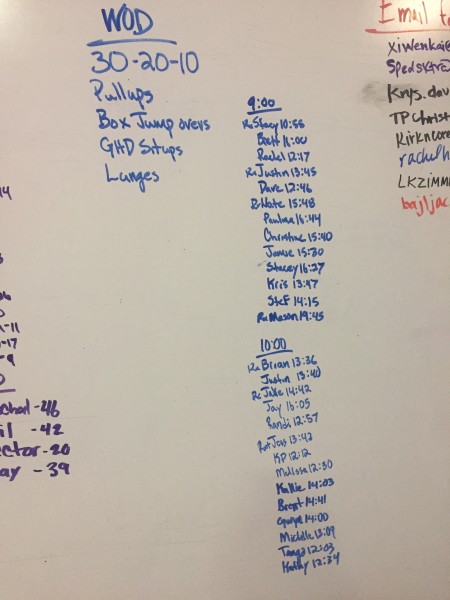 WOD
30-20-10
Pullups
Box Jump overs
GHD Situps
Lunges
9:00
Rx Stacy 10:58
Brett 11:00
Rachel 12:17
Rx Justin 13:45
Dave 12:46
Nate 15:48
Paulina 16:44
Christine 15:40
Jamie 15:30
Stacey 16:27
Kris 13:47
Stef 14:15
Rx Mason 19:45
10:00
Rx Brian 13:36
Justin 13:40
Rx Jake 14:42
Jay 16:05
Randi 12:57
Joss 13:42
KP 12:12
Melissa 12:30
Kallie 14:03
Brent 14:41
George 14:00
Michelle 13:09
Tanga 12:03
Hailey 12:34
Email
xiwenkai@
Spedsktr@
Krys.dav
TPChrist
Kirkncore
rachelh
LKZimm
bajljac
-11
-17
-9
-46
-42
ctor-20
ay -39